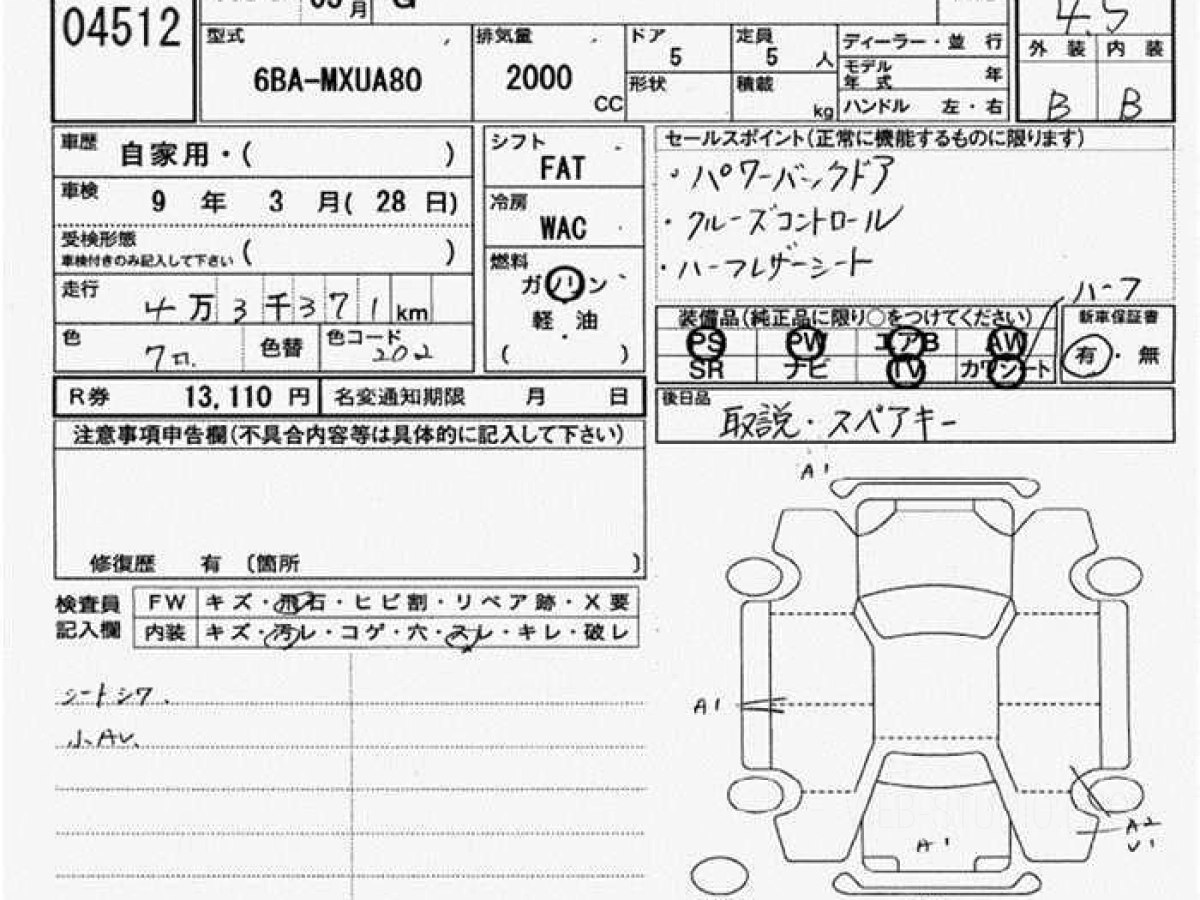 04512
月
G
型式
6BA-MXUA80
排気量
2000
CC
ドア
5
定員
5 人
形状
積載
kg
ディーラー・並 行
モデル
年 式 年
ハンドル 左・右
4.5
外 装 内 装
B B
車歴 自家用・( )
車検 9 年 3 月( 28 日)
受検形態
車検付きのみ記入して下さい ( )
走行 4万3千371km
色 クロ. 色替 色コード 202
シフト
FAT
冷房
WAC
燃料
ガソリン
軽 油
( )
セールスポイント(正常に機能するものに限ります)
・パワーバックドア
・クルーズコントロール
・ハーフレザーシート
ハーフ
装備品(純正品に限り○をつけてください)
PS PW エアB AW
SR ナビ TV カワシート
新車保証書
有・無
R券 13,110 円 名変通知期限 月 日
後日品
取説・スペアキー
注意事項申告欄(不具合内容等は具体的に記入して下さい)
修復歴 有 〔箇所 〕
検査員
記入欄
FW キズ・飛石・ヒビ割・リペア跡・X要
内装 キズ・汚レ・コゲ・穴・スレ・キレ・破レ
シートシワ.
小AU.
A1
A1
A1
A2
U1